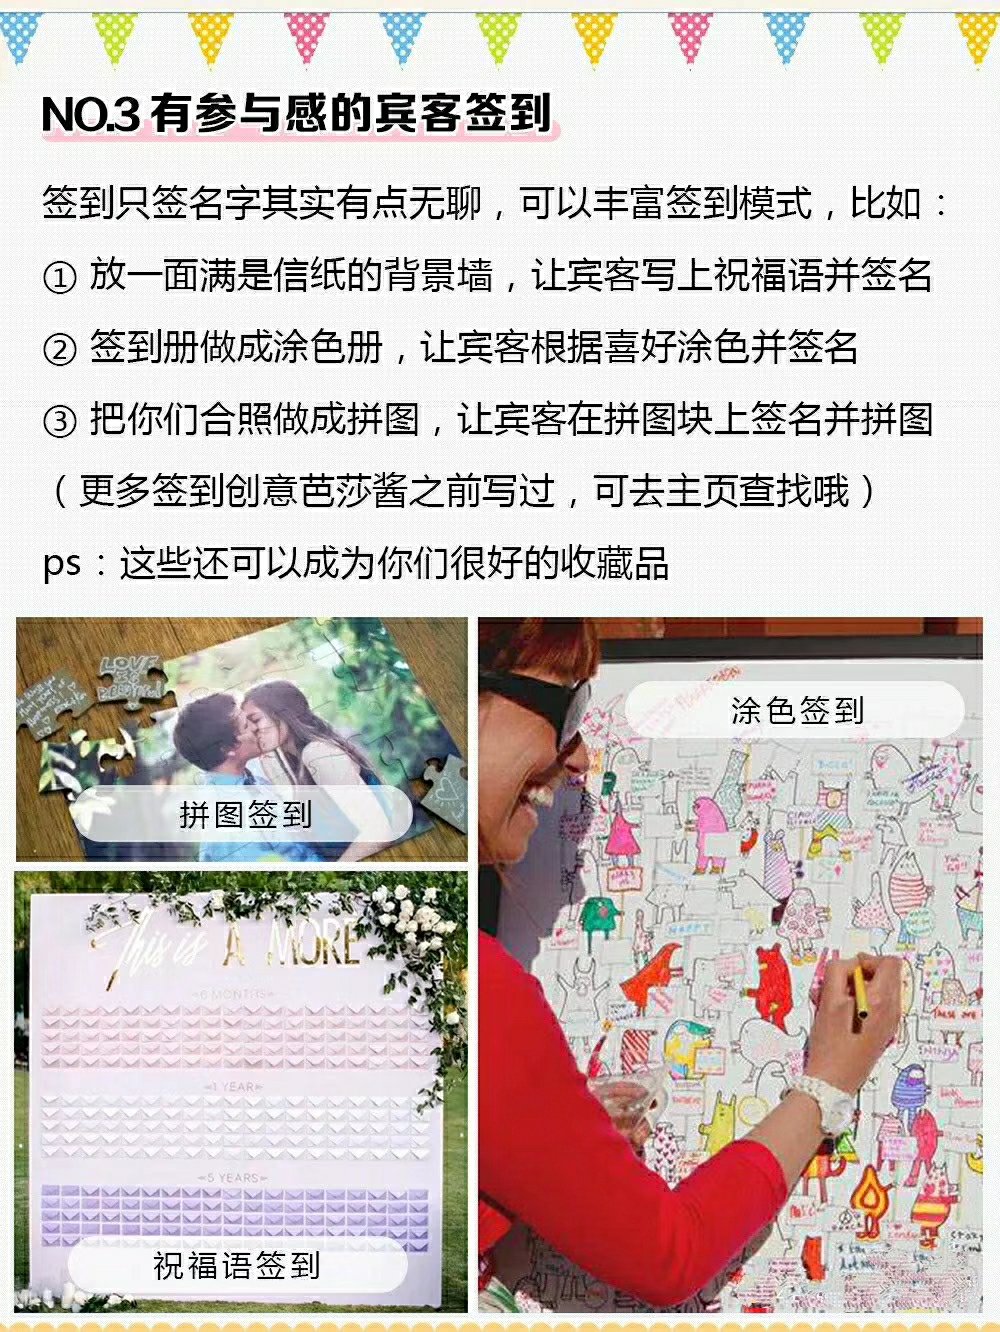 NO.3 有参与感的宾客签到
签到只签名字其实有点无聊，可以丰富签到模式，比如：
① 放一面满是信纸的背景墙，让宾客写上祝福语并签名
② 签到册做成涂色册，让宾客根据喜好涂色并签名
③ 把你们合照做成拼图，让宾客在拼图块上签名并拼图
（更多签到创意芭莎酱之前写过，可去主页查找哦）
ps：这些还可以成为你们很好的收藏品
LOVE
IS
拼图签到
涂色签到
HAPPY
NINJA
This is A MORE
6 MONTHS
1 YEAR
5 YEARS
祝福语签到